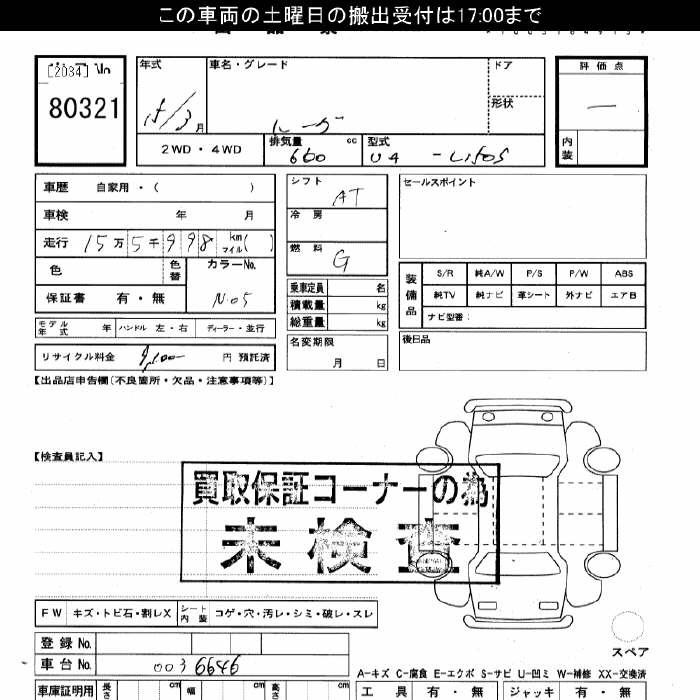 この車両の土曜日の搬出受付は17:00まで
[2034]
80321
年式
車名・グレード
ドア
形状
評価点
15/3月
2WD・4WD
排気量 cc
660
型式
内装
車歴 自家用・( )
車検 年 月
走行 15万5千998 km マイル( )
色 色替 カラーNo.
N05
保証書 有・無
モデル年式 年 ハンドル 左・右 ディーラー・並行
リサイクル料金 円 預託済
シフト AT
冷房
燃料 G
乗車定員 名
積載量 kg
総重量 kg
名変期限 月 日
セールスポイント
装備品 S/R 純A/W P/S P/W ABS
純TV 純ナビ 革シート 外ナビ エアB
ナビ型番:
後日品
【出品店申告欄(不良箇所・欠品・注意事項等)】
【検査員記入】
買取保証コーナーの為
未検査
FW キズ・トビ石・割レX シート内装 コゲ・穴・汚レ・シミ・破レ・スレ
登録No.
車台No. 0036646
スペア
A-キズ C-腐食 E-エクボ S-サビ U-凹ミ W-補修 XX-交換済
車庫証明用 長さ cm 幅 cm 高さ cm
工具 有・無 ジャッキ 有・無